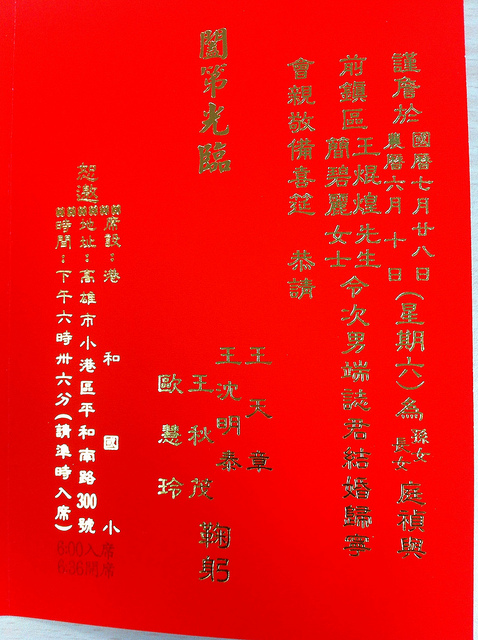 謹詹於國曆七月廿八日農曆六月十日(星期六)為孫女長女庭禎與
前鎮區王焜煌先生簡碧麗女士令次男端誌君結婚歸寧
會親敬備喜筵 恭請
闔第光臨
王天章
王沈明泰
王秋茂
歐慧玲
鞠躬
恕邀
席設:港和國小
地址:高雄市小港區平和南路300號
時間:下午六時卅六分(請準時入席)
6:00入席
6:36開席